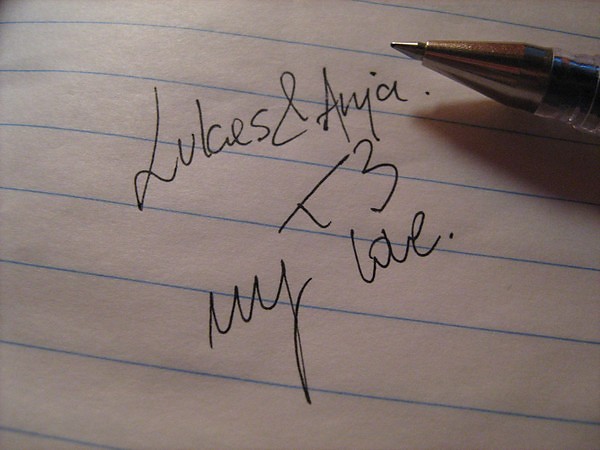 Lukas & Anja.
<3
my love.